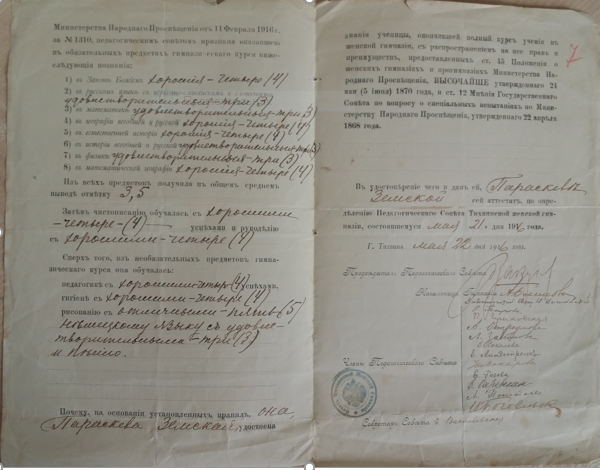 Министерства Народнаго Просвѣщенія отъ 11 Февраля 1916 г.
за № 1310, педагогическимъ совѣтомъ признана оказавшею
въ обязательныхъ предметахъ гимназическаго курса ниже-
слѣдующія познанія:
1) въ Законѣ Божіемъ хорошія-четыре (4)
2) въ русскомъ языкѣ съ
удовлетворительныя-три (3)
3) въ математикѣ удовлетворительныя-три (3)
4) въ географіи всеобщей и русской хорошія-четыре (4)
5) въ естественной исторіи хорошія-четыре (4)
6) въ исторіи всеобщей и русской удовлетворительныя-три (3)
7) въ физикѣ удовлетворительныя-три (3)
8) въ математической географіи хорошія-четыре (4)
Изъ всѣхъ предметовъ получила въ общемъ среднемъ
выводѣ отмѣтку 3,5
Затѣмъ чистописанію обучалась съ хорошими
-четыре-(4) успѣхами и рукодѣлію
съ хорошими-четыре (4)
Сверхъ того, изъ необязательныхъ предметовъ гимнази-
ческаго курса она обучалась:
педагогикѣ съ хорошими-четыре (4) успѣхами,
гигіенѣ съ хорошими-четыре (4)
рисованію съ отличными-пять (5)
нѣмецкому языку съ удовле-
творительными-три (3)
и пѣнію.
Почему, на основаніи установленныхъ правилъ, она,
Параскева Земская удостоена
7
званія ученицы, окончившей полный курсъ ученія въ
женской гимназіи, съ распространеніемъ на нее правъ и
преимуществъ, предоставленныхъ ст. 45 Положенія о
женскихъ гимназіяхъ и прогимназіяхъ Министерства На-
роднаго Просвѣщенія, ВЫСОЧАЙШЕ утвержденнаго 24
мая (5 іюня) 1870 года, и ст. 12 Мнѣнія Государственнаго
Совѣта по вопросу о спеціальныхъ испытаніяхъ по Мини-
стерству Народнаго Просвѣщенія, утвержденнаго 22 апрѣля
1868 года.
Въ удостовѣреніе чего и данъ ей, Параскевѣ
Земской сей аттестатъ, по опре-
дѣленію Педагогическаго Совѣта Тихвинской женской гим-
назіи, состоявшемуся мая 21 дня 1916 года.
Г. Тихвинъ мая 22 дня 1916 года.
Предсѣдатель Педагогическаго Совѣта
Начальница Гимназіи
Члены Педагогическаго Совѣта
Секретарь Совѣта